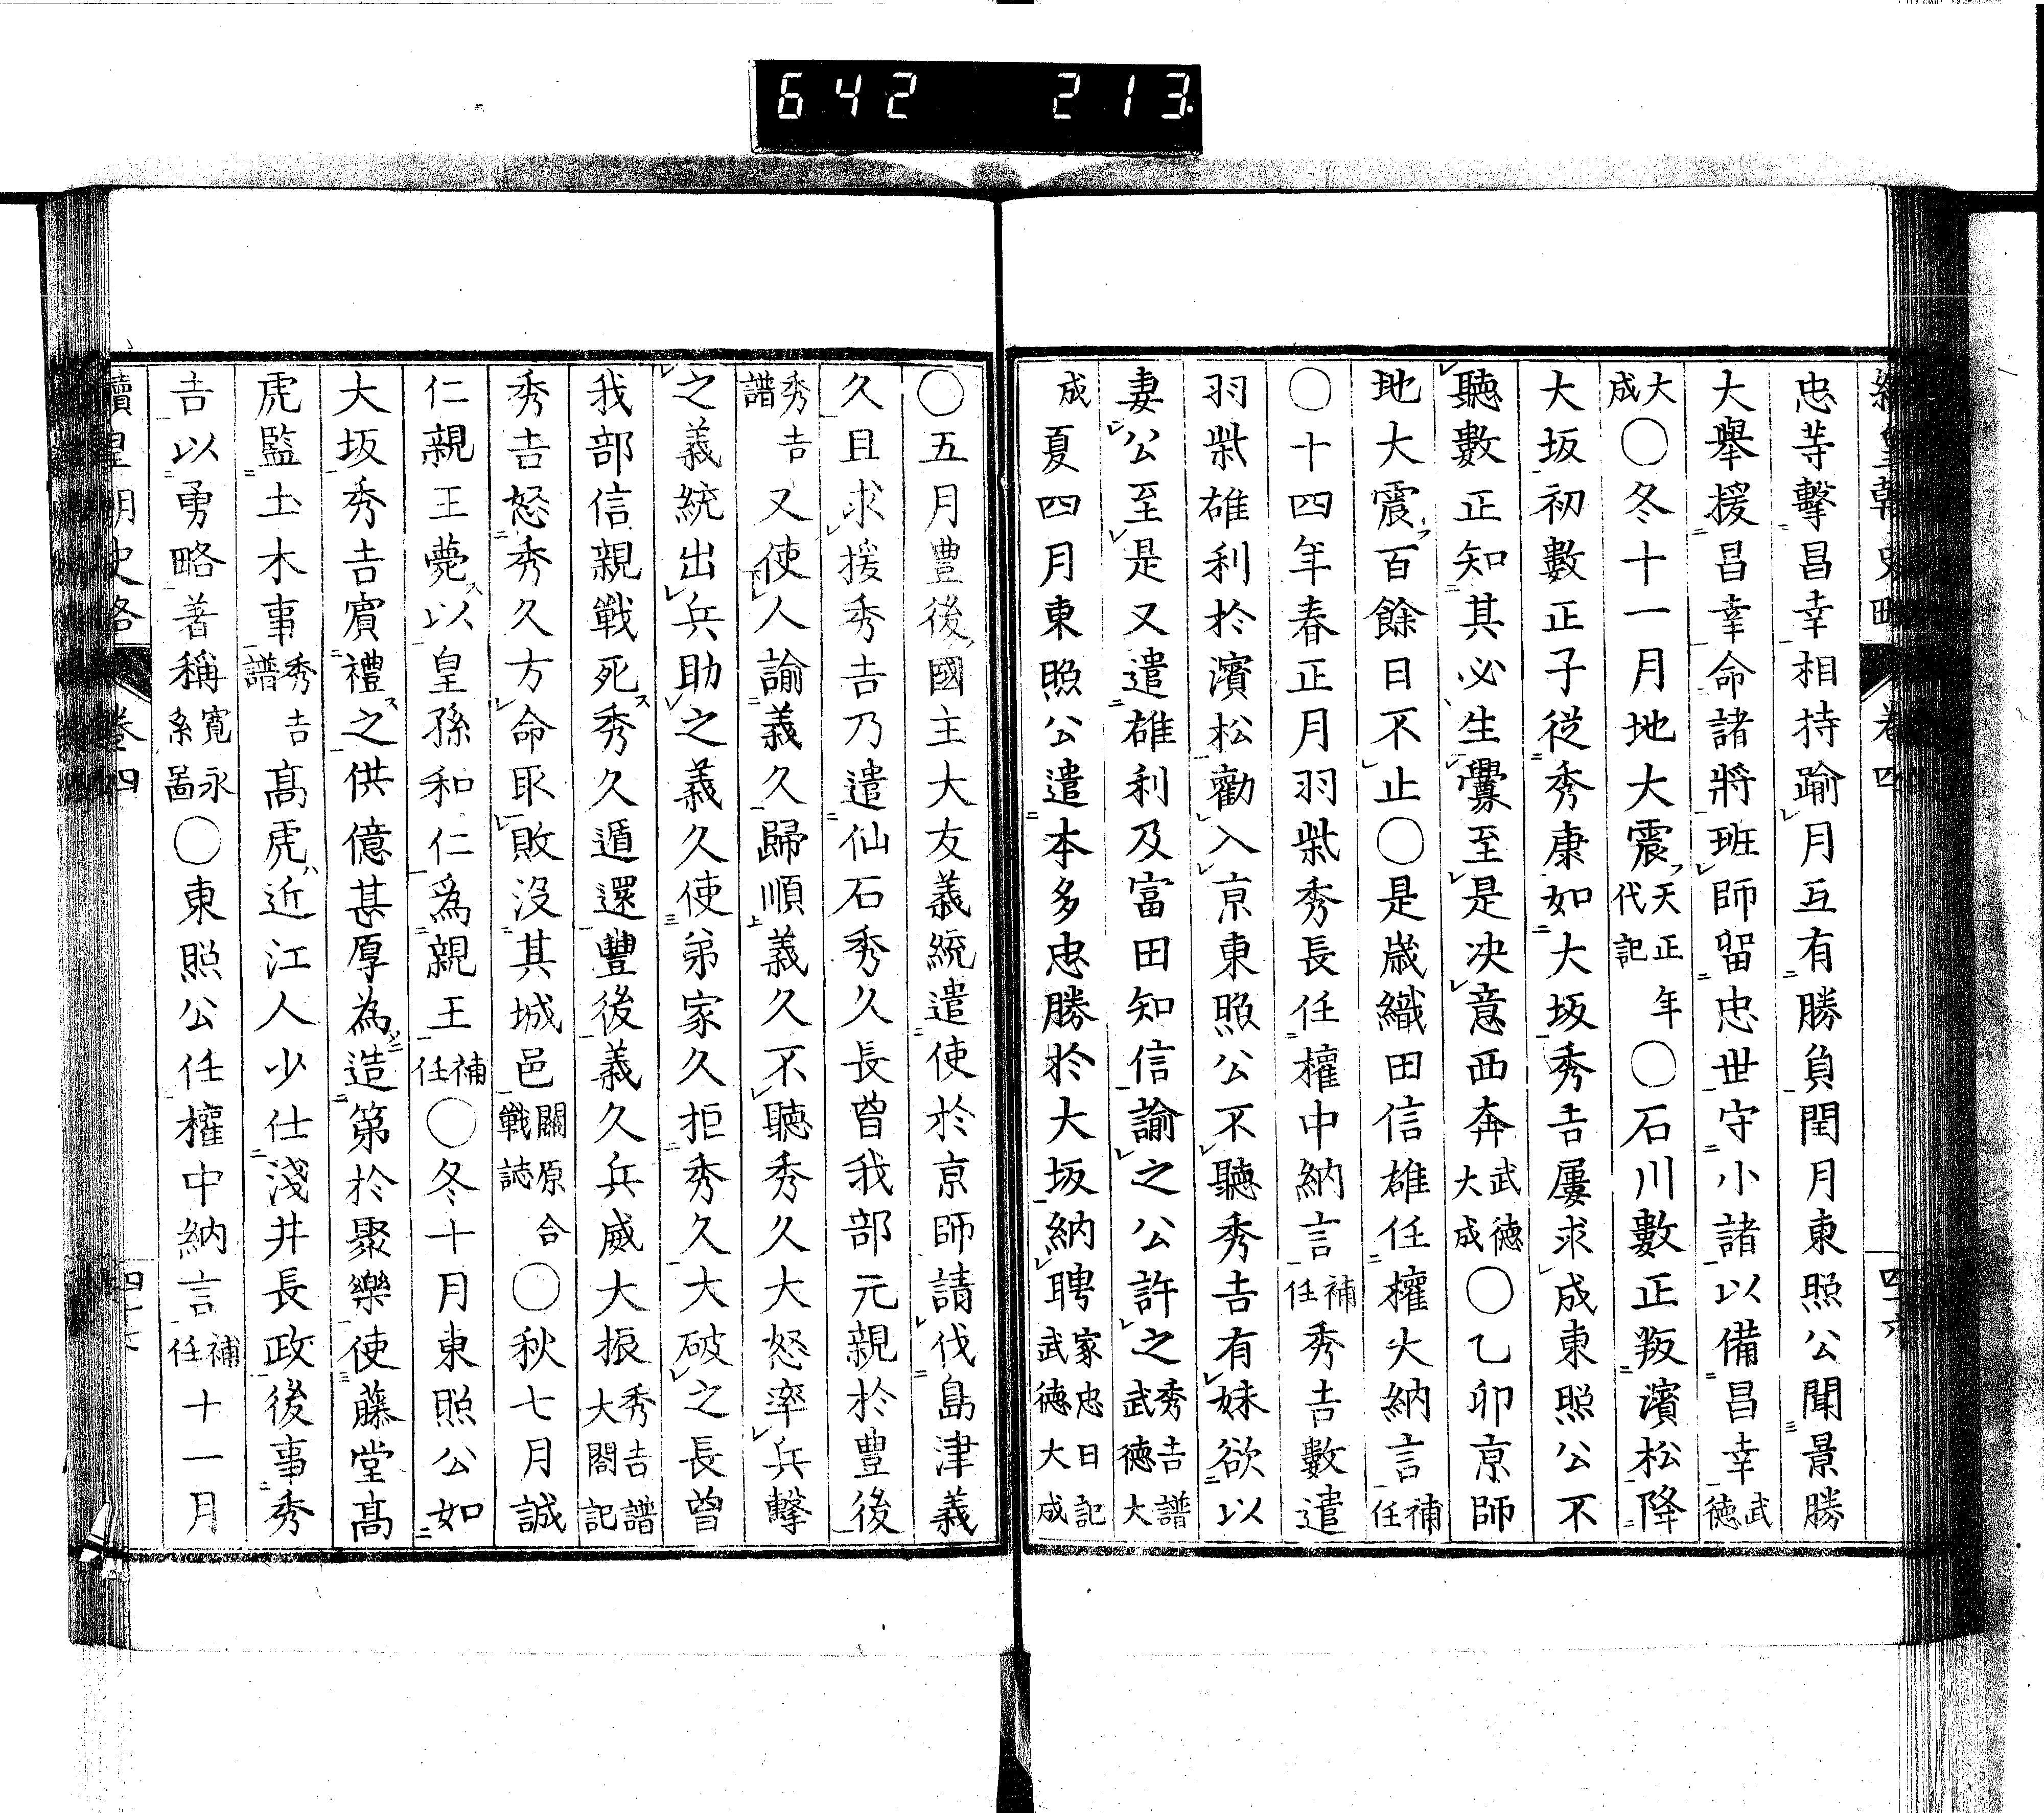 642 213
忠等擊昌幸相持踰月互有勝負閏月東照公聞景勝
大舉援昌幸命諸將班師留忠世守小諸以備昌幸武德
大成〇冬十一月地大震天正年代記〇石川數正叛濱松降
大坂初數正子從秀康如大坂秀吉屢求成東照公不
聽數正知其必生釁至是決意西奔武德大成〇乙卯京師
地大震百餘日不止〇是歲織田信雄任權大納言補任
〇十四年春正月羽柴秀長任權中納言補任秀吉數遣
羽柴雄利於濱松勸入京東照公不聽秀吉有妹欲以
妻公至是又遣雄利及富田知信諭之公許之秀吉譜武德大
成夏四月東照公遣本多忠勝於大坂納聘家忠日記武德大成
〇五月豊後國主大友義統遣使於京師請伐島津義
久且求援秀吉乃遣仙石秀久長曾我部元親於豊後
秀吉譜又使人諭義久歸順義久不聽秀久大怒率兵擊
之義統出兵助之義久使弟家久拒秀久大破之長曾
我部信親戰死秀久遁還豐後義久兵威大振秀吉譜大閤記
秀吉怒秀久方命取敗沒其城邑關原合戰誌〇秋七月誠
仁親王薨以皇孫和仁爲親王補任〇冬十月東照公如
大坂秀吉賓禮之供億甚厚為造第於聚樂使藤堂高
虎監土木事秀吉譜高虎近江人少仕淺井長政後事秀
吉以勇略著稱寬永系圖〇東照公任權中納言補任十一月
續皇朝史略 卷四